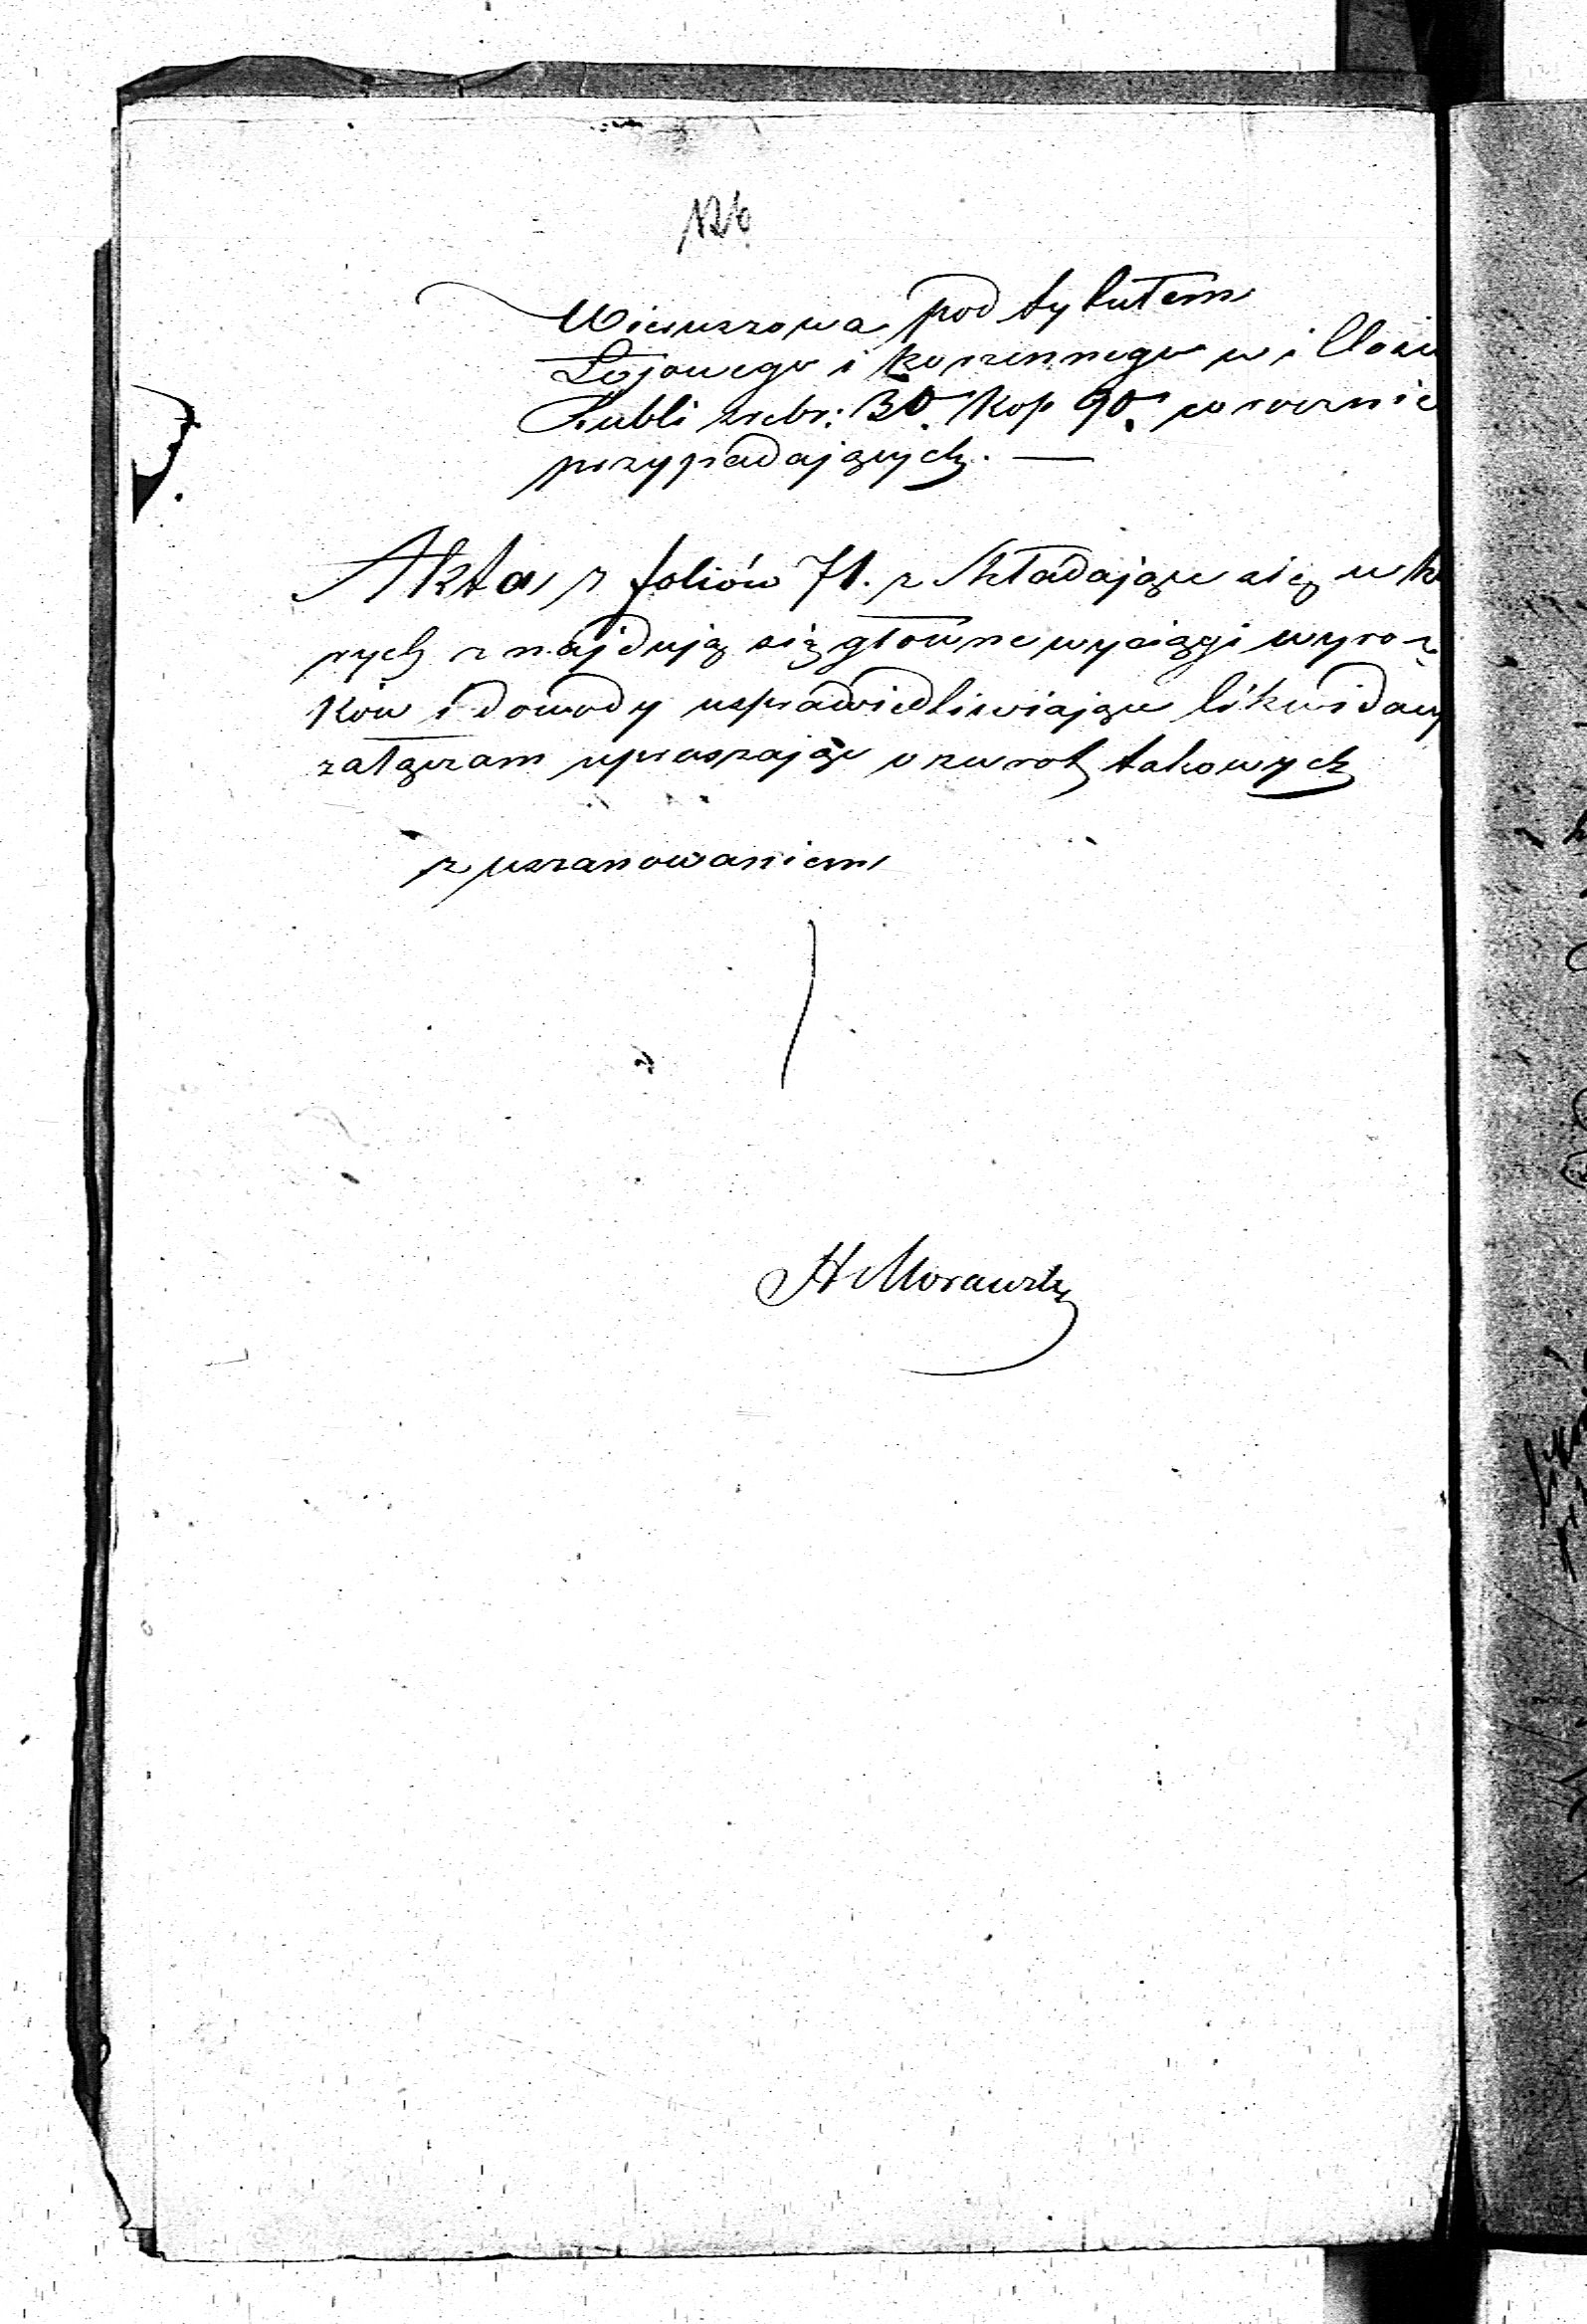 126
Wieruszowa pod tytułem
Łojowego i korzennego w illości
Rubli srebr: 30. Kop 90. corocznie
przypadających. —
Akta z foliów 71. z składające się w
rych znajdują się główne wyciągi wyro-
ków i dowody usprawiedliwiające likwidacy
załączam upraszając o zwrot takowych
z uszanowaniem
H Morawski